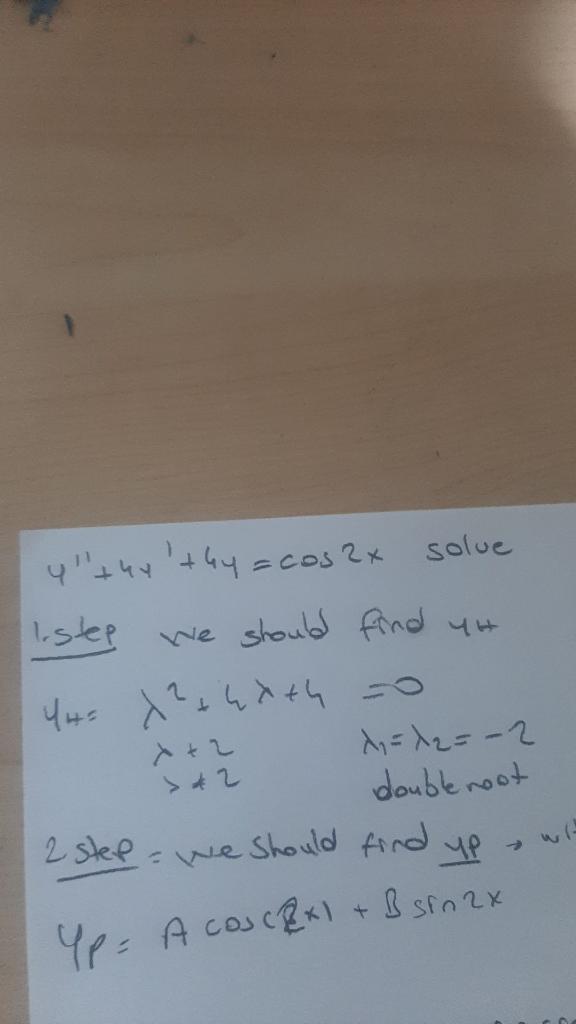 y'' + 4y' + 4y = cos 2x solve
1.step we should find yH
yH = λ² + 4λ + 4 = 0
λ + 2 λ₁ = λ₂ = -2
λ + 2 double root
2 step = we should find yp →
yp = A cos(2x) + B sin 2x